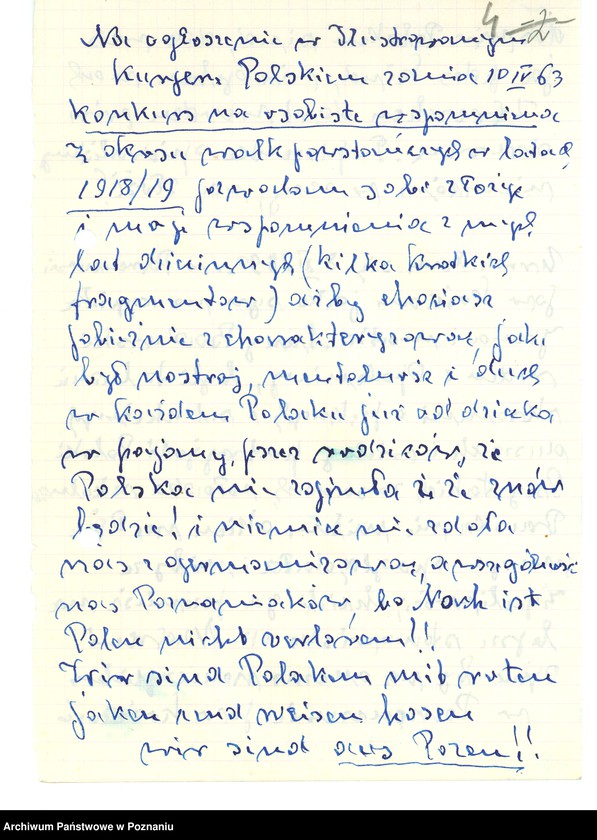 4
Na ogłoszenie w Ilustrowanym
Kurjerze Polskiem z dnia 10 IV 63
konkurs na osobiste wspomnienia
z okresu walk powstańczych w latach
1918/19 pozwalam sobie złożyć
i moje wspomnienia z mych
lat dziecinnych (kilka krótkich
fragmentów) ażby chociaż
pobieżnie zcharakteryzować, jaki
był nastrój, mentalność i duch
w każdem Polaku już od dziecka
w pojony, przez rodziców, że
Polska nie zginęła i że znów
będzie! i niemiec nie zdoła
nas zgermanizować, a szczególnie
nas Poznaniaków, bo Noch ist
Polen nicht verloren!!
Wir sind Polaken mit roten
jaken und weisen hosen
wir sind aus Posen!!
Archiwum Państwowe w Poznaniu